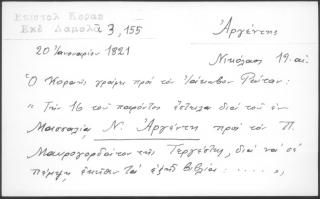 Επιστολ Κοραη
Εκδ Δαμαλᾶ 3, 155
Ἀργέντης
20 Ἰανουαρίου 1821
Νικόλαος 19. αἰ.
Ὁ Κοραῆς γράφει πρὸς τὸν Ἰάκωβον Ρώταν:
"Τὴν 16 τοῦ παρόντος ἔστειλα διὰ τοῦ ἐν
Μασσαλίᾳ Ν. Ἀργέντη πρὸς τὸν Π.
Μαυρογορδάτον τῆς Τεργέστης, διὰ νὰ σὲ
πέμψῃ ἐκεῖθεν τὰ ἑξῆς βιβλία: ..... „